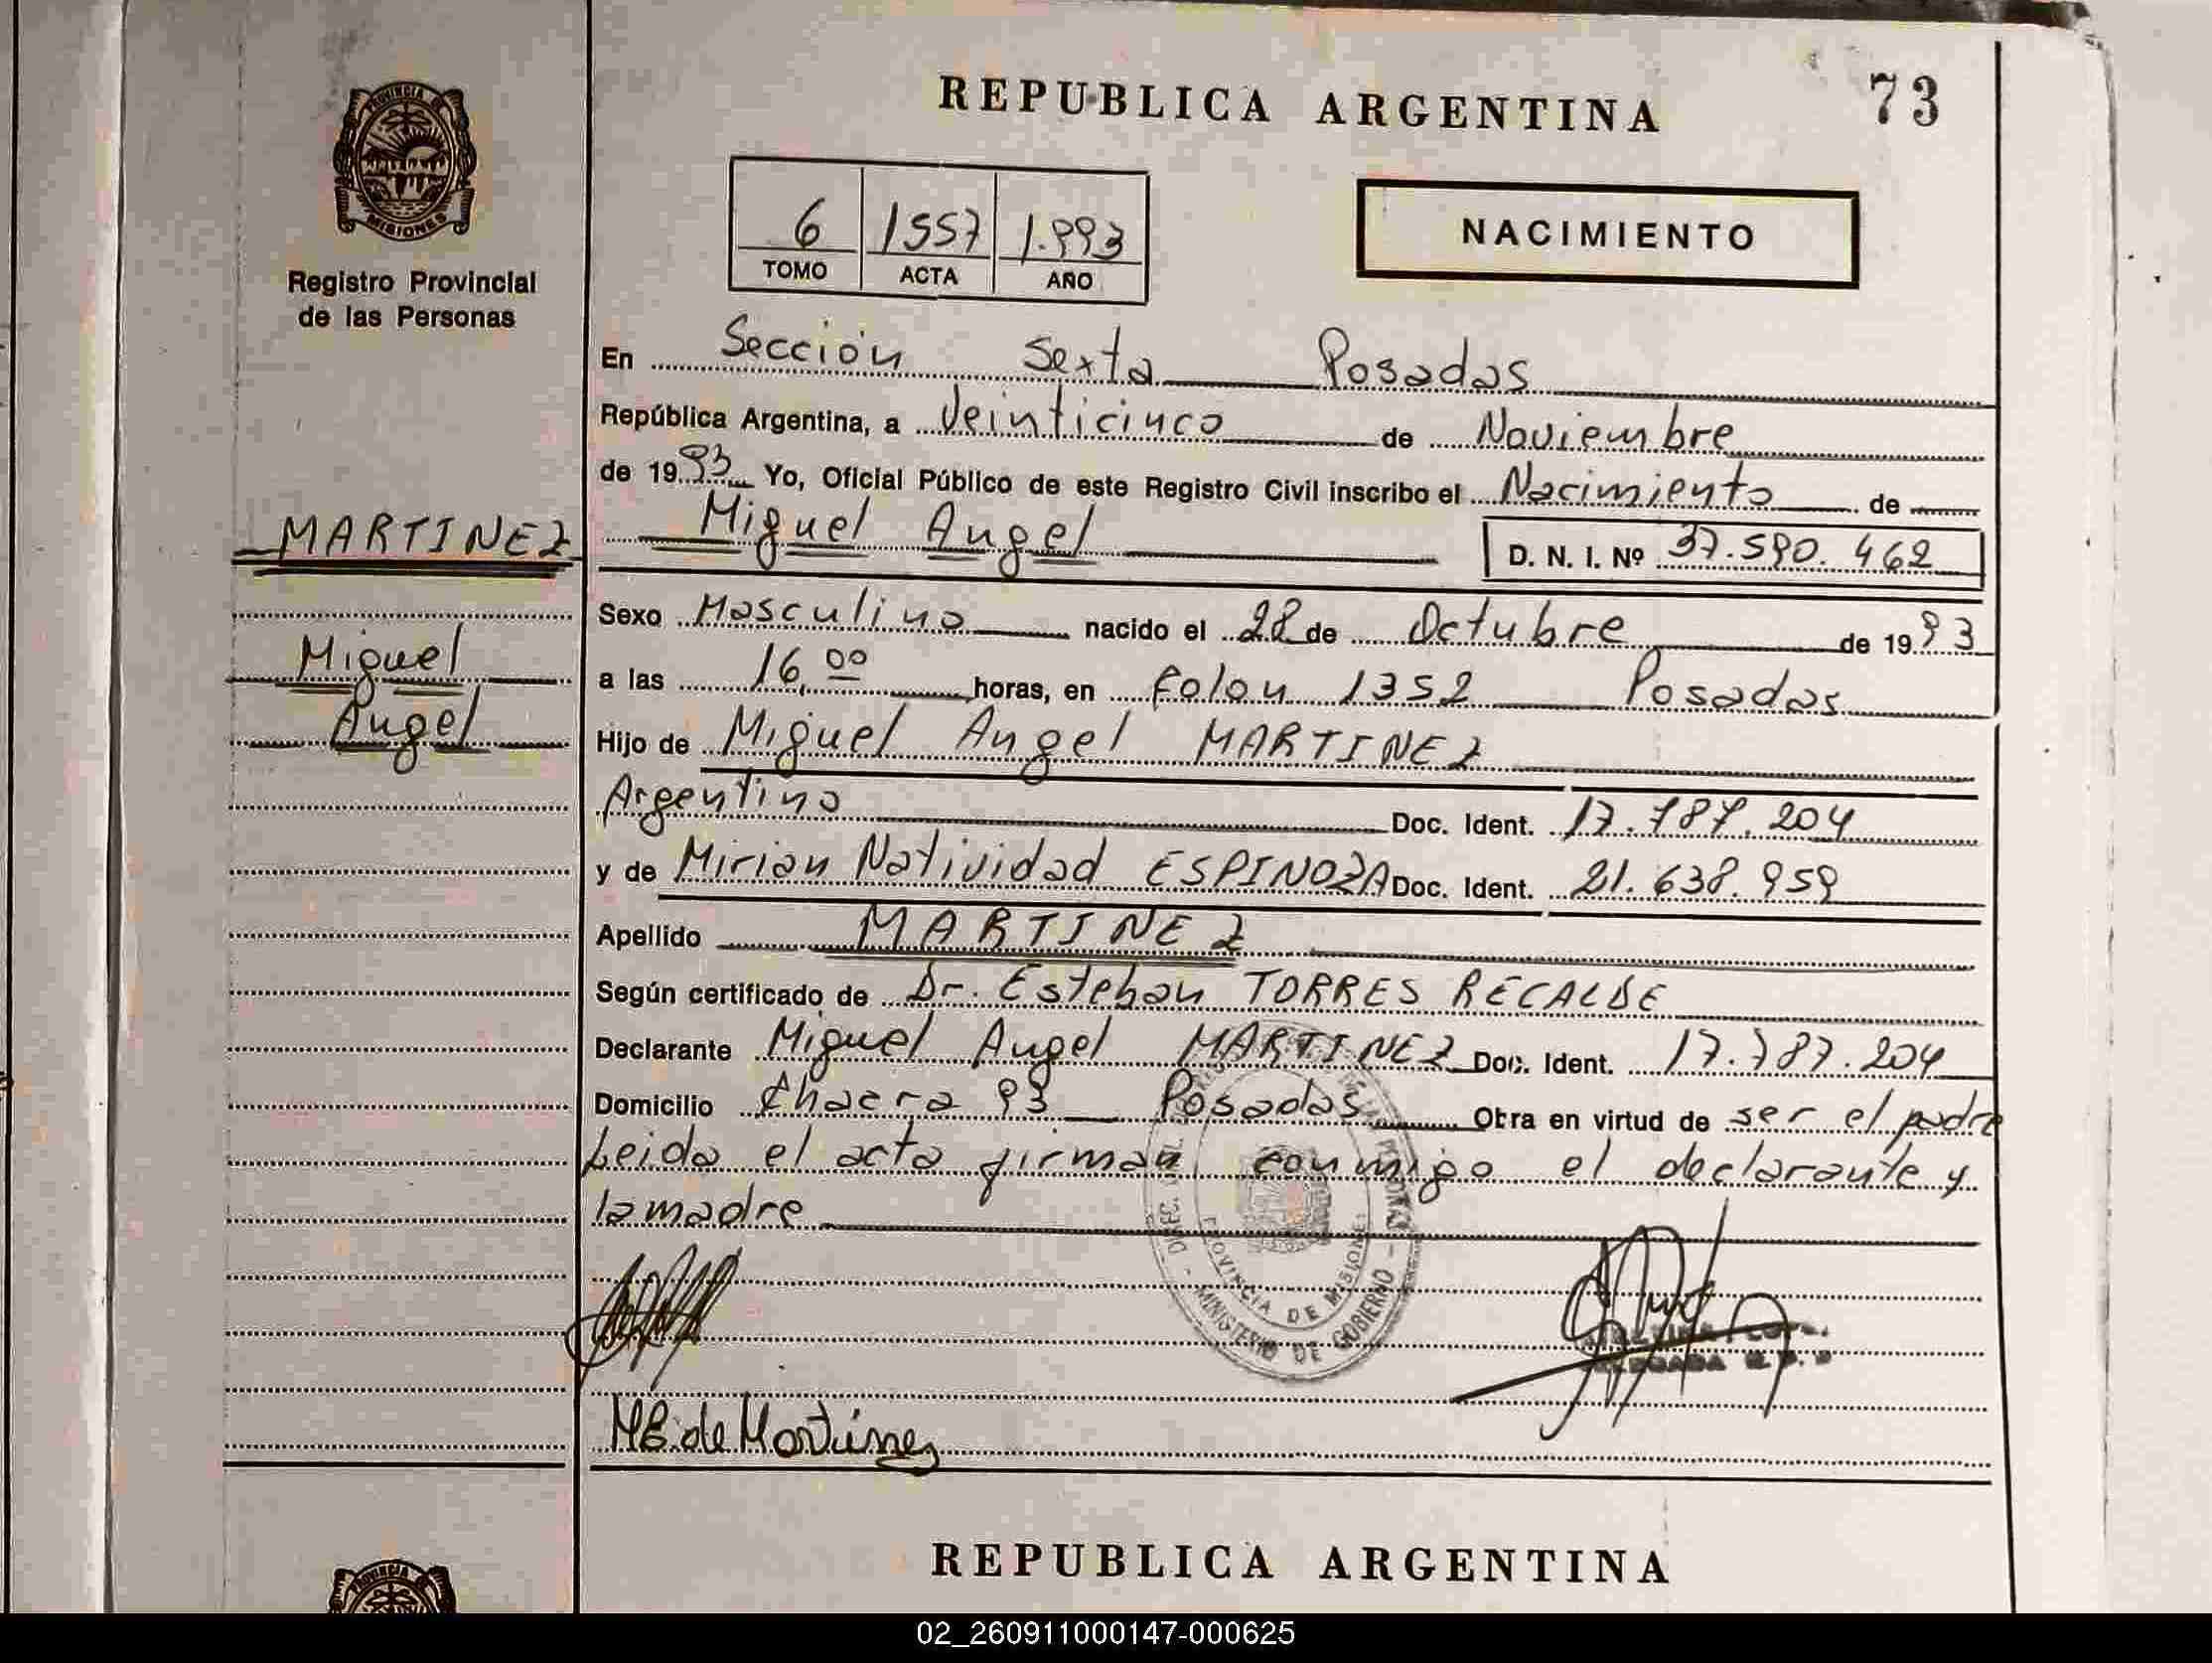 REPUBLICA ARGENTINA
73
PROVINCIA DE
MISIONES
Registro Provincial
de las Personas
6 1557 1.993
TOMO ACTA AÑO
NACIMIENTO
En Sección Sexta Posadas
República Argentina, a Veinticinco de Noviembre
de 1993 Yo, Oficial Público de este Registro Civil inscribo el Nacimiento de
MARTINEZ
Miguel Angel
D. N. I. Nº 37.590.462
Sexo Masculino nacido el 28 de Octubre de 1993
Miguel
Angel
a las 16,00 horas, en Colon 1352 Posadas
Hijo de Miguel Angel MARTINEZ
Argentino Doc. Ident. 17.787.204
y de Mirian Natividad ESPINOZA Doc. Ident. 21.638.959
Apellido MARTINEZ
Según certificado de Dr. Esteban TORRES RECALDE
Declarante Miguel Angel MARTINEZ Doc. Ident. 17.787.204
Domicilio Chacra 93 Posadas Obra en virtud de ser el padre
Leida el acta firman conmigo el declarante y
la madre
PROVINCIA DE MISIONES
MINISTERIO DE GOBIERNO
M E. de Martinez
REPUBLICA ARGENTINA
PROVINCIA DE
02_260911000147-000625